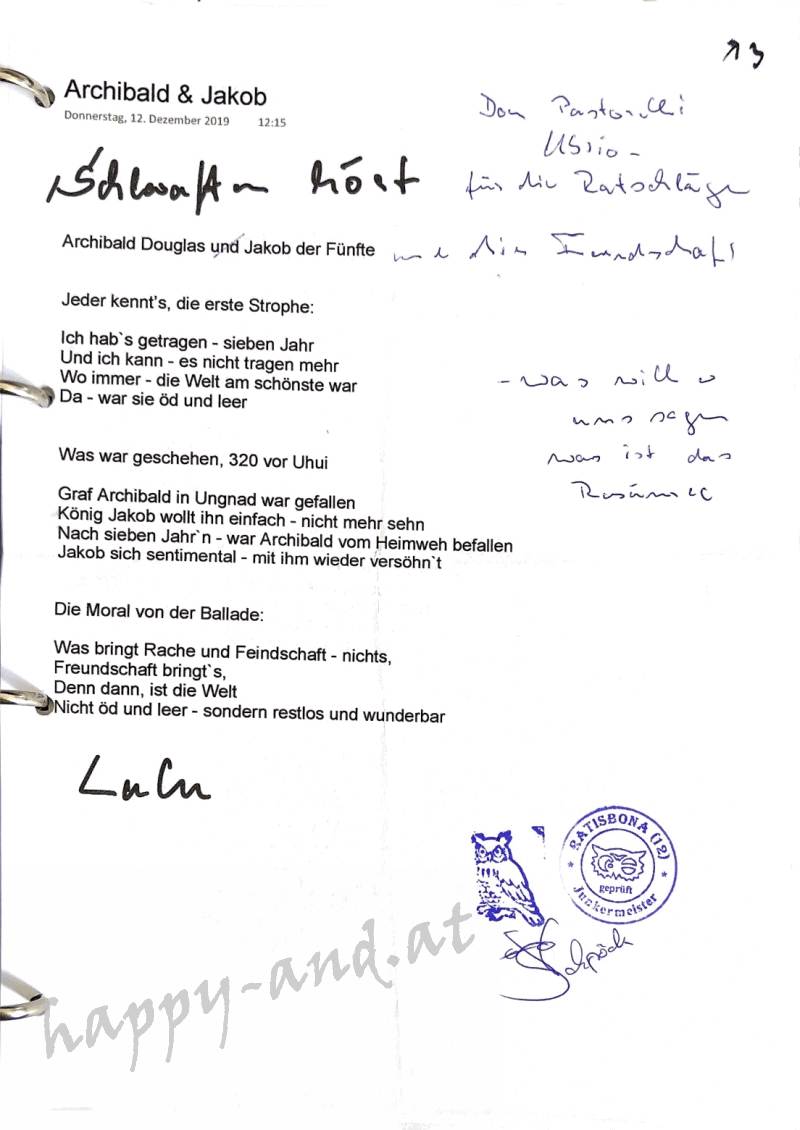 13
Archibald & Jakob
Donnerstag, 12. Dezember 2019 12:15
Don
für die Ratschläge
Archibald Douglas und Jakob der Fünfte
Jeder kennt's, die erste Strophe:
Ich hab`s getragen - sieben Jahr
Und ich kann - es nicht tragen mehr
Wo immer - die Welt am schönste war
Da - war sie öd und leer
- was will
uns sagen
was ist das
Was war geschehen, 320 vor Uhui
Graf Archibald in Ungnad war gefallen
König Jakob wollt ihn einfach - nicht mehr sehn
Nach sieben Jahr`n - war Archibald vom Heimweh befallen
Jakob sich sentimental - mit ihm wieder versöhn`t
Die Moral von der Ballade:
Was bringt Rache und Feindschaft - nichts,
Freundschaft bringt`s,
Denn dann, ist die Welt
Nicht öd und leer - sondern restlos und wunderbar
LuLu
RATISBONA (12)
geprüft
Junkermeister
happy-and.at